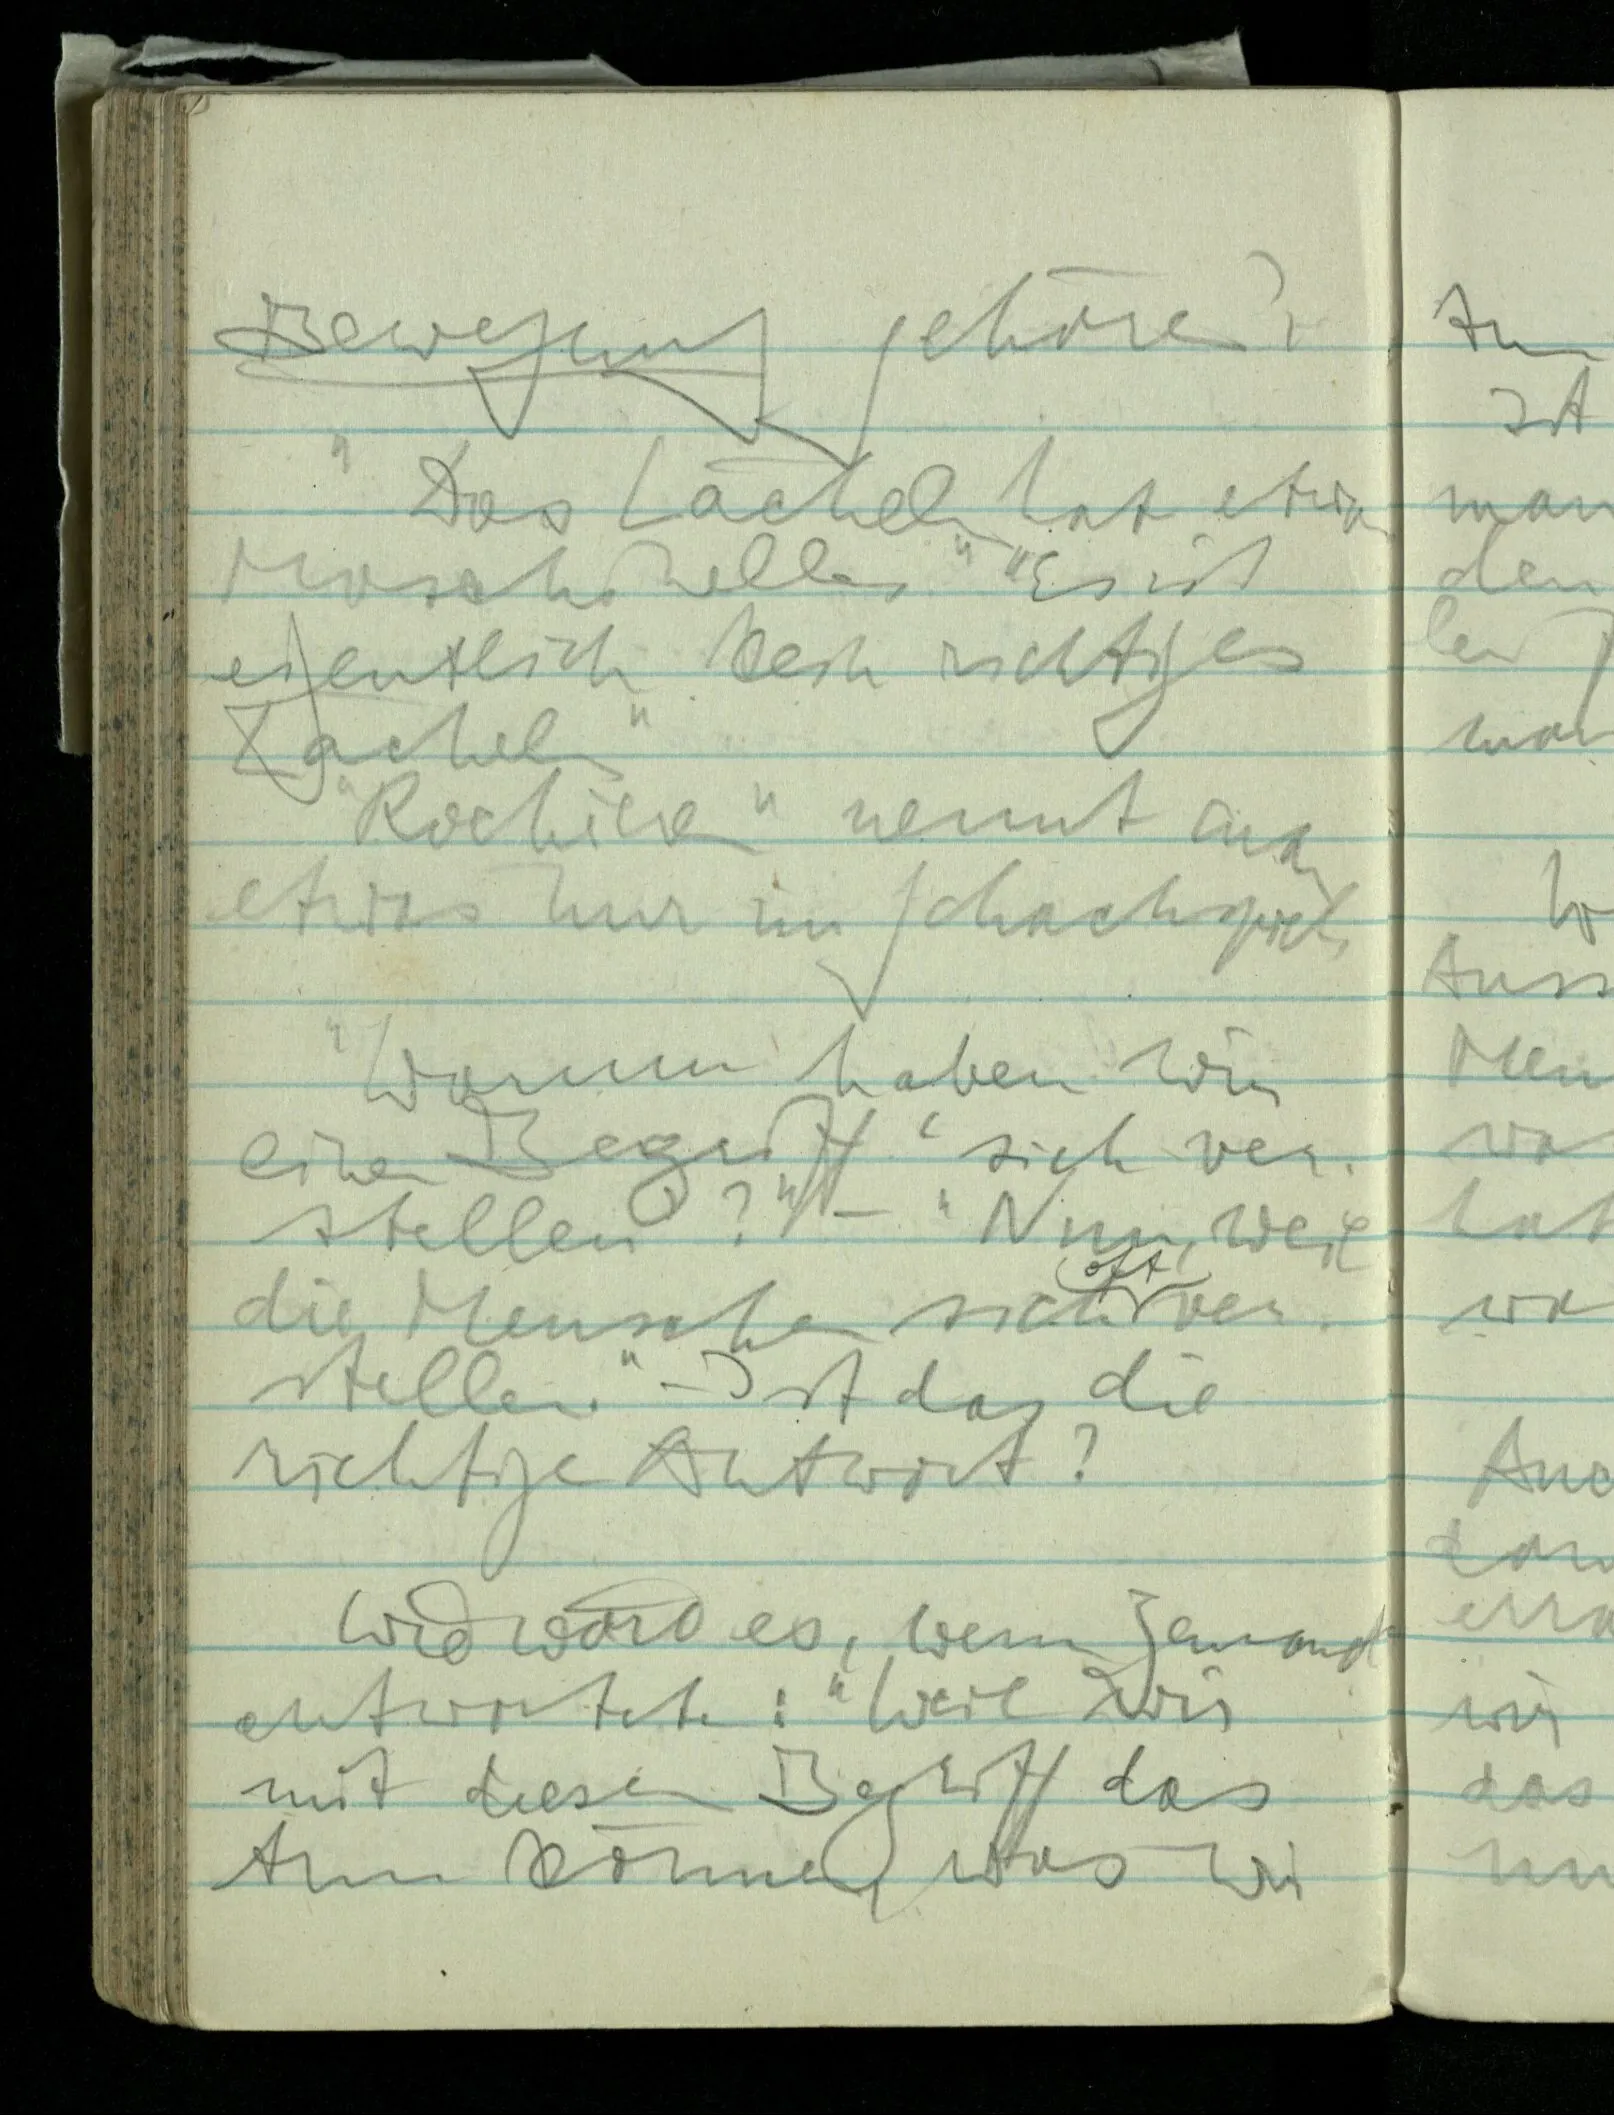 Bewegung gehöre?
"Das Lächeln hat etwas
Maschinelles" "Es ist
eigentlich kein richtiges
Lächeln"
"Rochieren" nennt man
etwas nur im Schachspiel.
"Warum haben wir
einen Begriff 'sich ver-
stellen'?" – "Nun, weil
oft
die Menschen sich ver-
stellen." – Ist das die
richtige Antwort?
Wie wäre es, wenn Jemand
antwortete: "Weil wir
mit diesem Begriff das
tun können, was wir
tun
Ist
man
den
man
Auss
Men
wa
hat
wa
wir
das